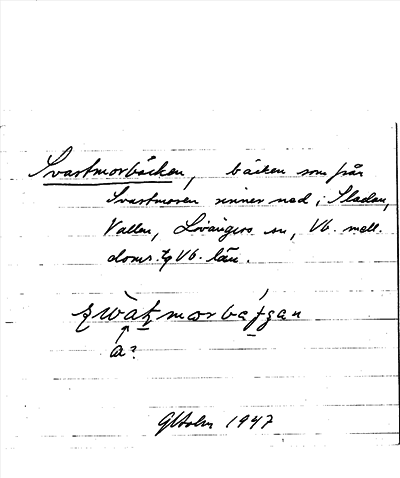 Svartmorbäcken, bäcken som från
Svartmoren rinner ned i Sladan,
Vallen, Lövångers sn, Vb. mell.
doms. Vb. län.
a?
1947